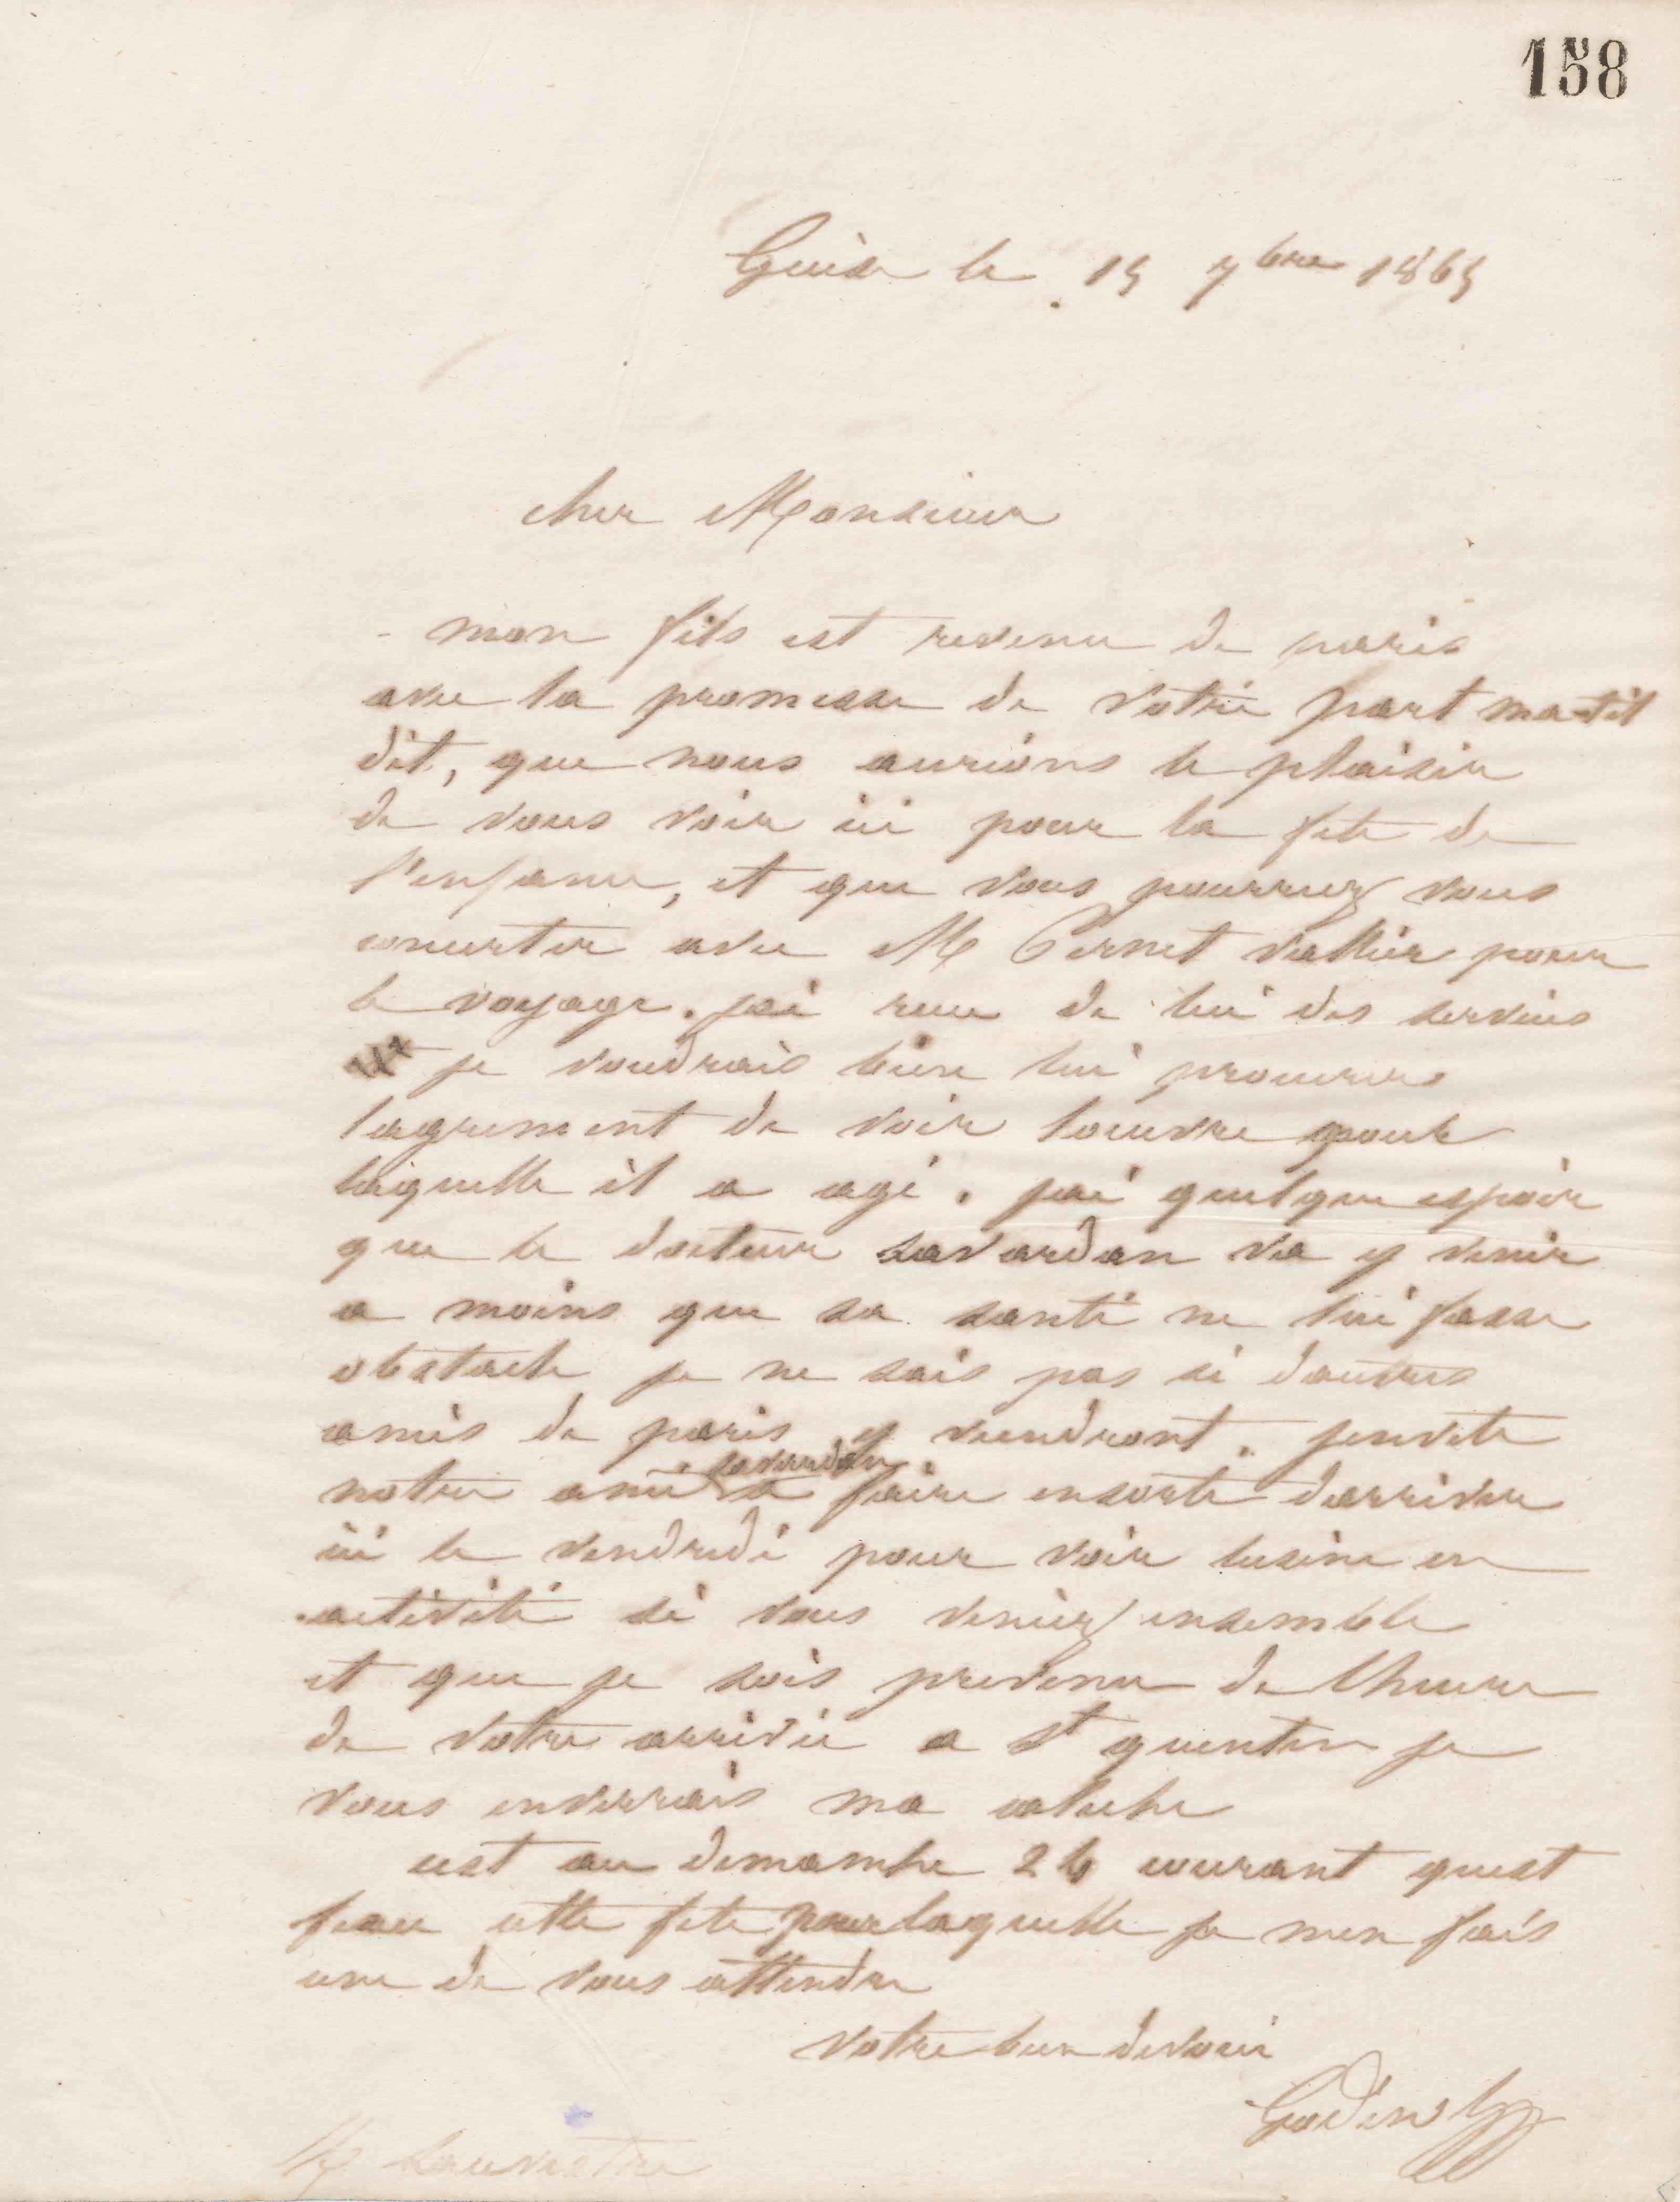 158
Guise le 15 7bre 1865
cher Monsieur
mon fils est revenu de paris
avec la promesse de votre part ma-til
dit, que nous aurions le plaisir
de vous voir ici pour la fete de
l'enfance, et que vous pourriez vous
concerter avec M Pernet vallier pour
le voyage. jai recu de lui des services
je voudrais bien lui procurer
lagrement de voir loeuvre pour
laquelle il a agi. jai quelque espoir
que le docteur savardan va y venir
a moins que sa santé ne lui fasse
obstacle je ne sais pas si dautres
amis de paris y viendront. jenvite
notre ami savardan a faire ensorte darriver
ici le vendredi pour voir lusine en
activité si vous veniez ensemble
et que je sois prevenu de lheure
de votre arrivée a St quentin je
vous enverrais ma caleche
cest au dimanche 24 courant quest
fixee cette fete pour laquelle je men fais
une de vous attendre
votre bien devoué
Godin
M Sauvestre